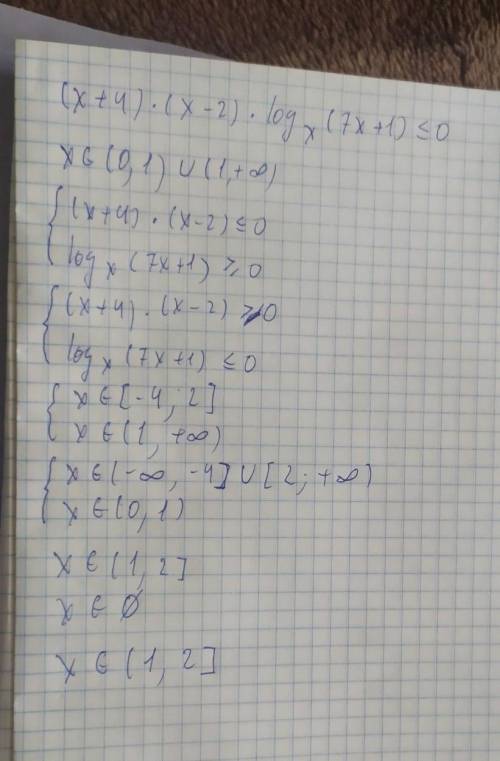 (x+4)·(x-2)·log_x(7x+1)≤0
x∈(0,1)∪(1,+∞)
{(x+4)·(x-2)≤0
log_x(7x+1)≥0
{(x+4)·(x-2)≥0
log_x(7x+1)≤0
{x∈[-4; 2]
x∈(1, +∞)
{x∈(-∞, -4]∪[2; +∞)
x∈(0,1)
x∈(1, 2]
x∈∅
x∈(1, 2]